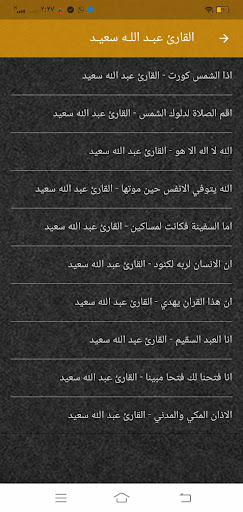 ٢:٢٧
القارئ عبد الله سعيد
اذا الشمس كورت - القارئ عبد الله سعيد
اقم الصلاة لدلوك الشمس - القارئ عبد الله سعيد
الله لا اله الا هو - القارئ عبد الله سعيد
الله يتوفي الانفس حين موتها - القارئ عبد الله سعيد
اما السفينة فكانت لمساكين - القارئ عبد الله سعيد
ان الانسان لربه لكنود - القارئ عبد الله سعيد
ان هذا القران يهدي - القارئ عبد الله سعيد
انا العبد السقيم - القارئ عبد الله سعيد
انا فتحنا لك فتحا مبينا - القارئ عبد الله سعيد
الاذان المكي والمدني - القارئ عبد الله سعيد